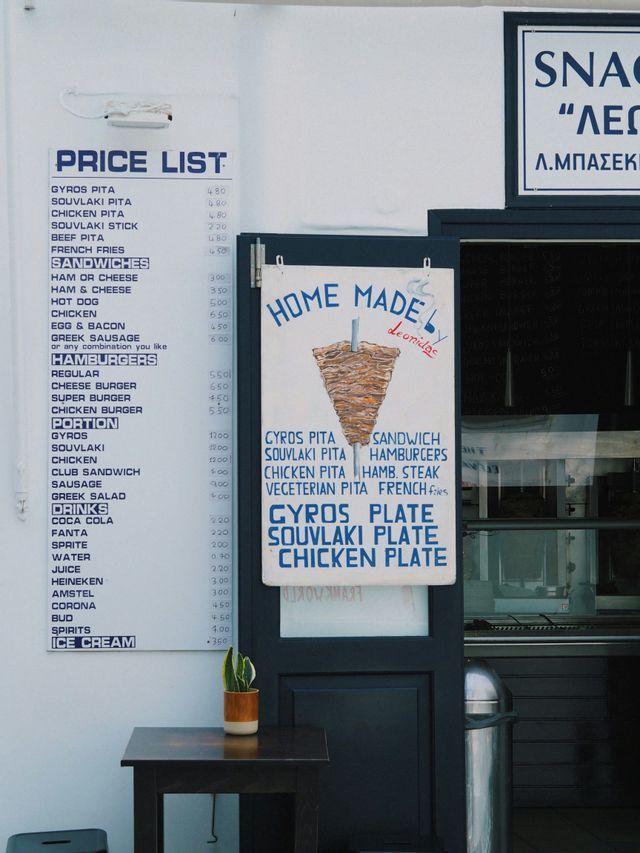 PRICE LIST
GYROS PITA 4.80
SOUVLAKI PITA 4.80
CHICKEN PITA 4.80
SOUVLAKI STICK 2.20
BEEF PITA 4.80
FRENCH FRIES 4.50
SANDWICHES
HAM OR CHEESE 3.00
HAM & CHEESE 3.50
HOT DOG 5.00
CHICKEN 6.50
EGG & BACON 4.50
GREEK SAUSAGE 6.00
or any combination you like
HAMBURGERS
REGULAR 5.50
CHEESE BURGER 6.50
SUPER BURGER
CHICKEN BURGER 5.50
PORTION
GYROS 12.00
SOUVLAKI 12.00
CHICKEN 12.00
CLUB SANDWICH
SAUSAGE
GREEK SALAD
DRINKS
COCA COLA 2.20
FANTA 2.20
SPRITE 2.00
WATER 0.70
JUICE 2.20
HEINEKEN 3.00
AMSTEL 3.00
CORONA 4.50
BUD 4.50
SPIRITS
ICE CREAM 3.50
HOME MADE by
Leonidas
GYROS PITA SANDWICH
SOUVLAKI PITA HAMBURGERS
CHICKEN PITA HAMB. STEAK
VEGETERIAN PITA FRENCH fries
GYROS PLATE
SOUVLAKI PLATE
CHICKEN PLATE
FRANKWORLD
SNAC
“ΛΕΩ
Λ.ΜΠΑΣΕΚ